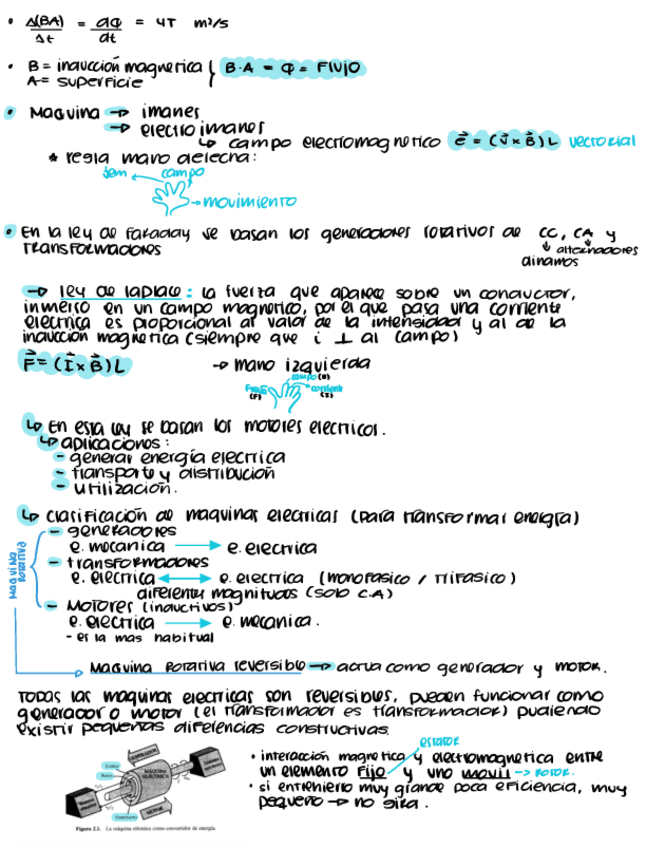 • Δ(BA)/Δt = dΦ/dt = 4T m²/s
• B = inducción magnetica } B·A = Φ = Flujo
A = superficie
• Maquina → imanes
→ electroimanes
↳ campo electromagnetico e⃗ = (v⃗ x B⃗) L vectorial
* regla mano derecha:
fem ← campo
→ movimiento
• En la ley de Faraday se basan los generadores rotativos de CC, CA y
transformadores
↓ ↓ alternadores
dinamos
→ ley de laplace: la fuerza que aparece sobre un conductor,
inmerso en un campo magnetico, por el que pasa una corriente
electrica es proporcional al valor de la intensidad y al de la
inducción magnetica (siempre que i ⊥ al campo)
F⃗ = (I⃗ x B⃗) L → mano izquierda
campo (B)
(F) corriente
(I)
↳ En esta ley se basan los motores electricos.
↳ aplicaciones:
- generar energía electrica
- transporte y distribución
- utilización.
↳ clasificación de maquinas electricas (para transformar energía)
- generadores
e. mecanica → e. electrica
- transformadores
e. electrica ↔ e. electrica (monofasico / trifasico)
diferentes magnitudes (solo C.A)
- Motores (inductivos)
e. electrica → e. mecanica.
- es la mas habitual
Maquina rotativa
→ Maquina rotativa reversible → actua como generador y motor.
Todas las maquinas electricas son reversibles, pueden funcionar como
generador o motor (el transformador es transformador) pudiendo
existir pequeñas diferencias constructivas.
GENERADOR
MÁQUINA
ELÉCTRICA
MOTOR
Figura 2.1. La máquina eléctrica como convertidor de energía.
estator
• interacción magnetica y electromagnetica entre
un elemento Fijo y uno movil → rotor.
• si entrehierro muy grande poca eficiencia, muy
pequeño → no gira.